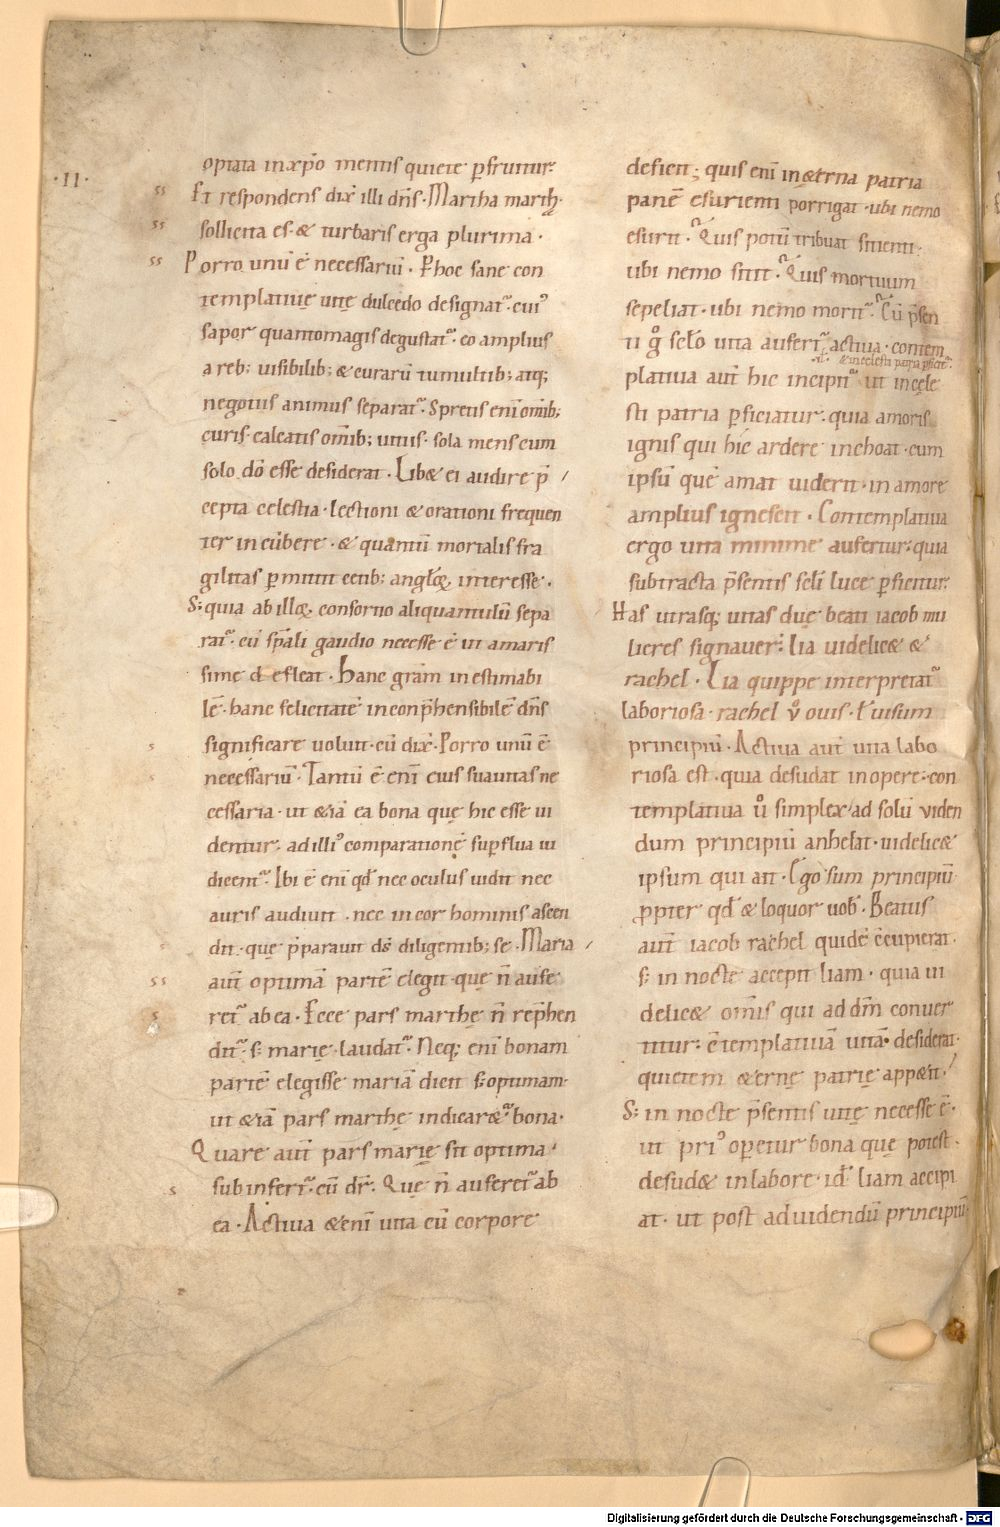 ·II·
optata inxp̄o mentis quiete ꝑfruitur.
Et respondens dix̄ illi dn̄s. Martha marthę.
sollicita es. & turbaris erga plurima.
Porro unū ē necessariū. Ꝑ hoc sane con
templatiuę uitę dulcedo designat᷑. cui᷒
sapor quantomagis degustat᷑. eo amplius
a reb; uisibilib; & curarū tumultib; atq;
negotiis animus separat᷑. Spretis enī om̄ib;
curis. calcatis om̄ib; uitiis. sola mens cum
solo dō esse desiderat. Lib& ei audire p̄
cepta celestia. lectioni & orationi frequen
ter incūbere. & quantū mortalis fra
gilitas ꝑmittit cetib; anglꝝ interesse.
S; quia ab illꝝ consortio aliquantulū sepa
rat᷑. cū sp̄ali gaudio necesse ē ut amaris
sime defleat. Hanc gram̄ inestimabi
lē. hanc felicitatē inconp̄hensibilē dn̄s
significare uoluit. cū dix̄. Porro unū ē
necessariū. Tantū ē enī eius suauitas ne
cessaria. ut &iā ea bona quę hic esse ui
dentur. ad illi᷒ comparationē suꝑflua iu
dicent᷑. Ibi ē enī qđ nec oculus uidit nec
auris audiuit. nec in cor hominis ascen
dit. quę p̄parauit ds̄ diligentib; se. Maria
aut̄ optimā partē elegit. quę n̄ aufe
ret᷑ ab ea. Ecce pars marthę n̄ rep̄hen
dit᷑. s; marię laudat᷑. Neq; enī bonam
partē elegisse mariā dicit. s; optimam.
ut &iā pars marthę indicar&᷑ bona.
Quare aut̄ pars marię sit optima.
subinfert᷑. cū dr̄. Quę n̄ auferet᷑ ab
ea. Actiua &enī uita cū corpore
defiett; quis enī in &erna patria
panē esurienti porrigat. ubi nemo
esurit. Quis potū tribuat sitienti.
ubi nemo sitit. Quis mortuum
sepeliat. ubi nemo morit᷑. Cū p̄sen
ti gͦ sclō uita aufert᷑ actiua. contem
& in celesti patria ꝑficit᷑.
platiua aut̄ hic incipit᷑ ut in cęle
sti patria ꝑficiatur. quia amoris
ignis qui hic ardere inchoat. cum
ipsū quē amat uiderit. in amore
amplius ignescit. Contemplatiua
ergo uita minime aufertur. quia
subtracta p̄sentis sclī luce ꝑficitur.
Has utrasq; uitas duę beati iacob mu
lieres signauer̄. lia uidelic& &
rachel. Lia quippe interpretat᷑
laboriosa. rachel ṽ ouis. ł uisum
principiū. Actiua aut̄ uita labo
riosa est. quia desudat in opere. con
templatiua ũ simplex. ad solū viden
dum principiū anhelat. uidelic&
ipsum qui ait. Ego sum principiū
ꝓpter qđ & loquor uob̄. Beatus
aut̄ iacob rachel quidē cc̄upierat.
s; in nocte accepit liam. quia ui
delic& om̄is qui ad dm̄ conuer
titur. cc̄templatiuā uitā desiderat.
quietem &ernę patrię app&it.
S; in nocte p̄sentis uitę necesse ē.
ut pri᷒ oꝑetur bona quę potest.
desud& in labore. id̄ liam accipi
at. ut post ad uidendū principiū
Digitalisierung gefördert durch die Deutsche Forschungsgemeinschaft - DFG